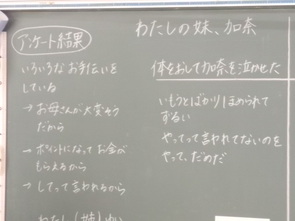 わたしの妹、加奈
アンケート結果
いろいろなお手伝いを
している
→お母さんが大変そう
だから
→ポイントになってお金が
もらえるから
→してって言われるから
わたし(姉)
体をおして加奈を泣かせた
いもうとばかりほめられて
ずるい
やってって言われてないのを
やって、だめだ